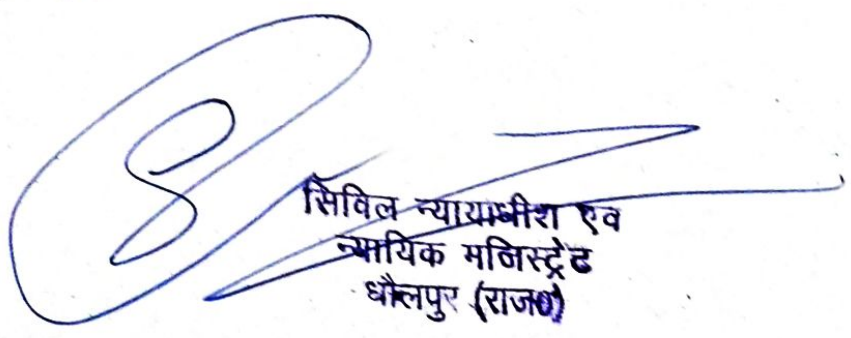 सिविल न्यायाधीश एवं
न्यायिक मजिस्ट्रेट
धौलपुर (राज०)